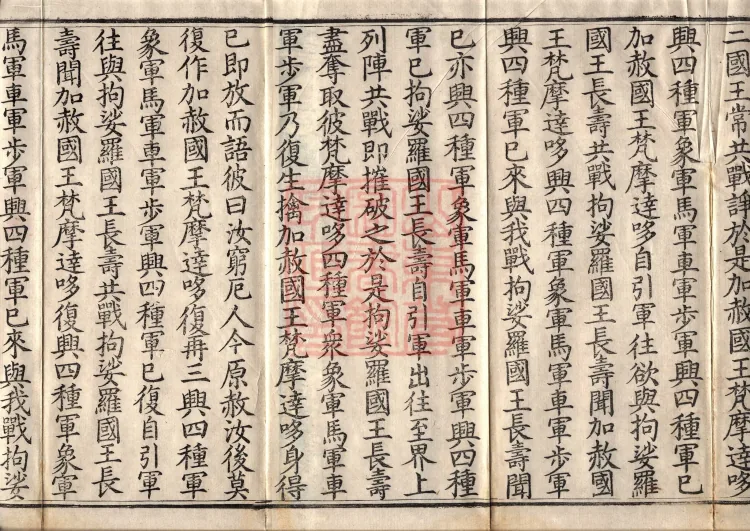 二國王常共戰諍於是加赦國王梵摩達哆
興四種軍象軍馬軍車軍步軍興四種軍已
加赦國王梵摩達哆自引軍往欲與拘娑羅
國王長壽共戰拘娑羅國王長壽聞加赦國
王梵摩達哆興四種軍象軍馬軍車軍步軍
興四種軍已來與我戰拘娑羅國王長壽聞
已亦興四種軍象軍馬軍車軍步軍興四種
軍已拘娑羅國王長壽自引軍出往至界上
列陣共戰即摧破之於是拘娑羅國王長壽
盡奪取彼梵摩達哆四種軍衆象軍馬軍車
軍步軍乃復生擒加赦國王梵摩達哆身得
已即放而語彼曰汝窮厄人今原赦汝後莫
復作加赦國王梵摩達哆復再三興四種軍
象軍馬軍車軍步軍興四種軍已復自引軍
往與拘娑羅國王長壽共戰拘娑羅國王長
壽聞加赦國王梵摩達哆復興四種軍象軍
馬軍車軍步軍興四種軍已來與我戰拘娑